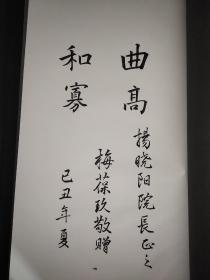 曲高
和寡
楊晓阳院長正之
梅葆玖敬贈
己丑年夏